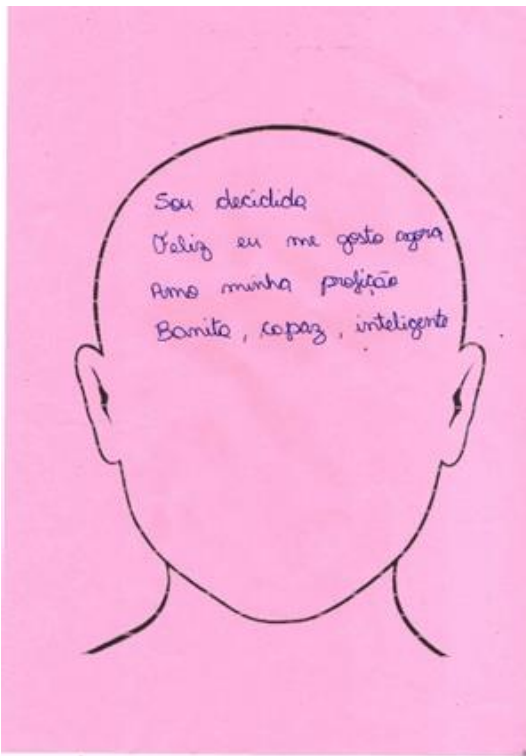 Sou decidida
Feliz eu me gosto agora
Amo minha profição
Bonita, capaz, inteligente